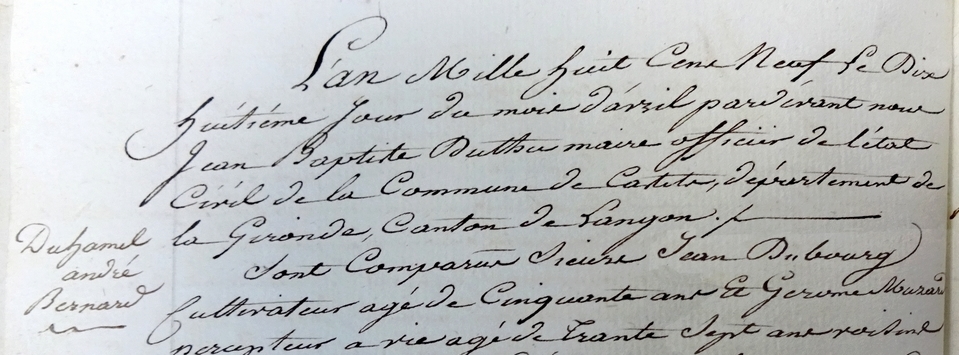 L'an Mille huit Cent Neuf Le Dix
huitiéme Jour du mois d'avril pardevant nous
Jean Baptiste Duthu maire officier de l'état
Civil de la Commune de Castets, département de
la Gironde, Canton de Langon ./.
Sont Comparus Sieurs Jean Dubourg
Cultivateur agé de Cinquante ans Et Gerome
percepteur a vie agé de Trante Sept ans voisins
Duhamel
andré
Bernard